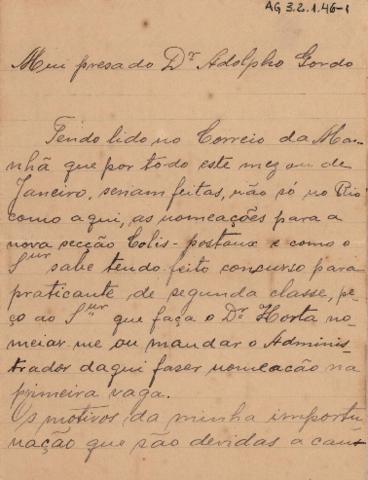 AG 3.2.1.46-1
Meu presado Dr Adolpho Gordo
Tendo lido no Correio da Ma-
nhã que por todo este mez ou de
Janeiro, seriam feitas, não só no Rio
como aqui, as nomeações para a
nova secção Colis-postaux e como o
Snr sabe tendo feito concurso para
praticante de segunda classe, pe-
ço ao Snr que faça o Dr Horta no-
meiar me ou mandar o Adminis-
trador daqui fazer nomeacão na
primeira vaga.
Os motivos da minha importu
nação que são devidas a